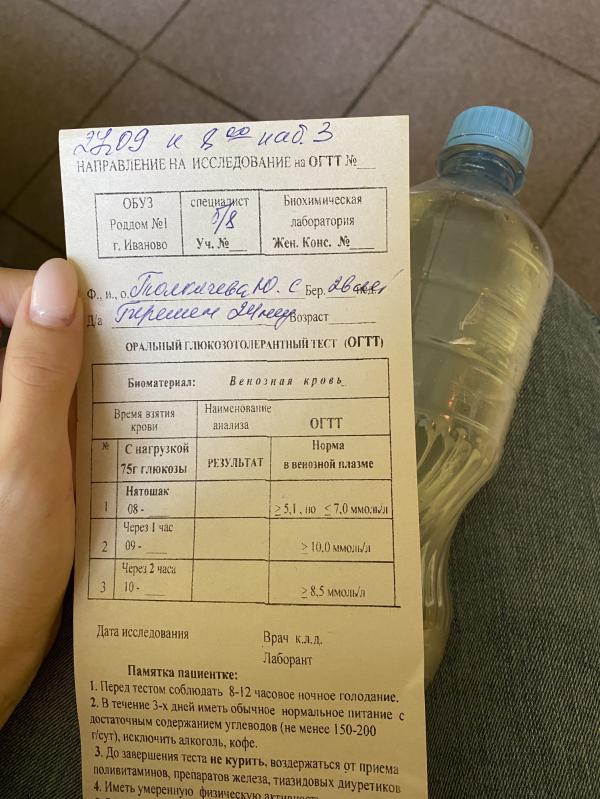 27.09 к 8 00 каб. 3
НАПРАВЛЕНИЕ НА ИССЛЕДОВАНИЕ на ОГТТ №___
ОБУЗ специалист Биохимическая
Роддом №1 5/8 лаборатория
г. Иваново Уч. №___ Жен. Конс. №____
Ф., и., о. Ю. С Бер.
Д/а Возраст
ОРАЛЬНЫЙ ГЛЮКОЗОТОЛЕРАНТНЫЙ ТЕСТ (ОГТТ)
Биоматериал: Венозная кровь
Время взятия крови Наименование анализа ОГТТ
№ С нагрузкой 75г глюкозы РЕЗУЛЬТАТ Норма в венозной плазме
1 Натощак 08 - ___ ≥ 5,1 , но ≤ 7,0 ммоль/л
2 Через 1 час 09 - ___ ≥ 10,0 ммоль/л
3 Через 2 часа 10 - ___ ≥ 8,5 ммоль/л
Дата исследования Врач к.л.д.
Лаборант
Памятка пациентке:
1. Перед тестом соблюдать 8-12 часовое ночное голодание.
2. В течение 3-х дней иметь обычное нормальное питание с
достаточным содержанием углеводов (не менее 150-200
г/сут), исключить алкоголь, кофе.
3. До завершения теста не курить, воздержаться от приема
поливитаминов, препаратов железа, тиазидовых диуретиков
4. Иметь умеренную физическую